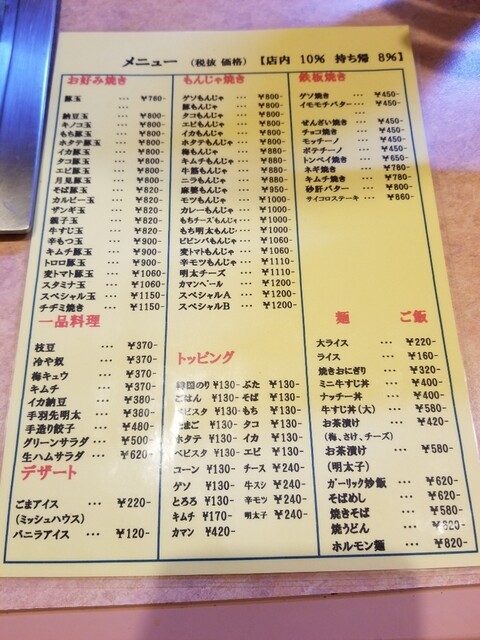 メニュー （税抜 価格）【店内 10% 持ち帰 8%】
お好み焼き
豚玉 … ¥760-
…
納豆玉 … ¥800-
キノコ玉 … ¥800-
もち豚玉 … ¥800-
ホタテ豚玉 … ¥800-
イカ豚玉 … ¥800-
タコ豚玉 … ¥800-
エビ豚玉 … ¥800-
月見豚玉 … ¥800-
そば豚玉 … ¥820-
カルビー玉 … ¥820-
ザンギ玉 … ¥820-
餃子玉 … ¥820-
牛すじ玉 … ¥820-
辛もつ玉 … ¥900-
キムチ豚玉 … ¥900-
トロロ豚玉 … ¥900-
変トマト豚玉 … ¥1060-
スタミナ玉 … ¥1060-
スペシャル玉 … ¥1150-
チヂミ焼き … ¥1150-
一品料理
枝豆 … ¥370-
冷や奴 … ¥370-
梅キュウ … ¥370-
キムチ … ¥370-
イカ納豆 … ¥380-
手羽先明太 … ¥380-
手造り餃子 … ¥480-
グリーンサラダ … ¥500-
生ハムサラダ … ¥620-
デザート
ごまアイス … ¥220-
(ミッシュハウス)
バニラアイス … ¥120-
もんじゃ焼き
ゲソもんじゃ … ¥800-
豚もんじゃ … ¥800-
タコもんじゃ … ¥800-
エビもんじゃ … ¥800-
イカもんじゃ … ¥800-
ホタテもんじゃ … ¥800-
梅もんじゃ … ¥880-
キムチもんじゃ … ¥880-
牛筋もんじゃ … ¥880-
ニラもんじゃ … ¥880-
麻婆もんじゃ … ¥950-
モツもんじゃ … ¥1000-
カレーもんじゃ … ¥1000-
もちチーズもんじゃ … ¥1000-
もち明太もんじゃ … ¥1000-
ビビンバもんじゃ … ¥1060-
変トマもんじゃ … ¥1060-
辛モツもんじゃ … ¥1110-
明太チーズ … ¥1110-
カマンベール … ¥1200-
スペシャルA … ¥1200-
スペシャルB … ¥1200-
トッピング
韓国のり ¥130- ぶた ¥130-
ごはん ¥130- そば ¥130-
ベビスタ ¥130- もち ¥130-
たまご ¥130- タコ ¥130-
ホタテ ¥130- イカ ¥130-
ベビスタ ¥130- エビ ¥130-
コーン ¥130- チース ¥240-
ゲソ ¥130- 牛スジ ¥240-
とろろ ¥130- 辛モツ ¥240-
キムチ ¥170- 明太子 ¥240-
カマン ¥420-
鉄板焼き
ゲソ焼き … ¥450-
イモモチバター … ¥450-
…
ぜんざい焼き … ¥450-
チョコ焼き … ¥450-
モッチーノ … ¥450-
ポテチーノ … ¥450-
トンペイ焼き … ¥650-
ネギ焼き … ¥780-
キムチ焼き … ¥780-
砂肝バター … ¥800-
サイコロステーキ … ¥860-
麺 ご飯
大ライス … ¥220-
ライス … ¥160-
焼きおにぎり … ¥320-
ミニ牛すじ丼 … ¥400-
ナッチー丼 … ¥400-
牛すじ丼(大) … ¥580-
お茶漬け … ¥420-
(梅、さけ、チーズ)
お茶漬け … ¥580-
(明太子)
ガーリック炒飯 … ¥620-
そばめし … ¥620-
焼きそば … ¥580-
焼うどん … ¥620-
ホルモン麺 … ¥820-